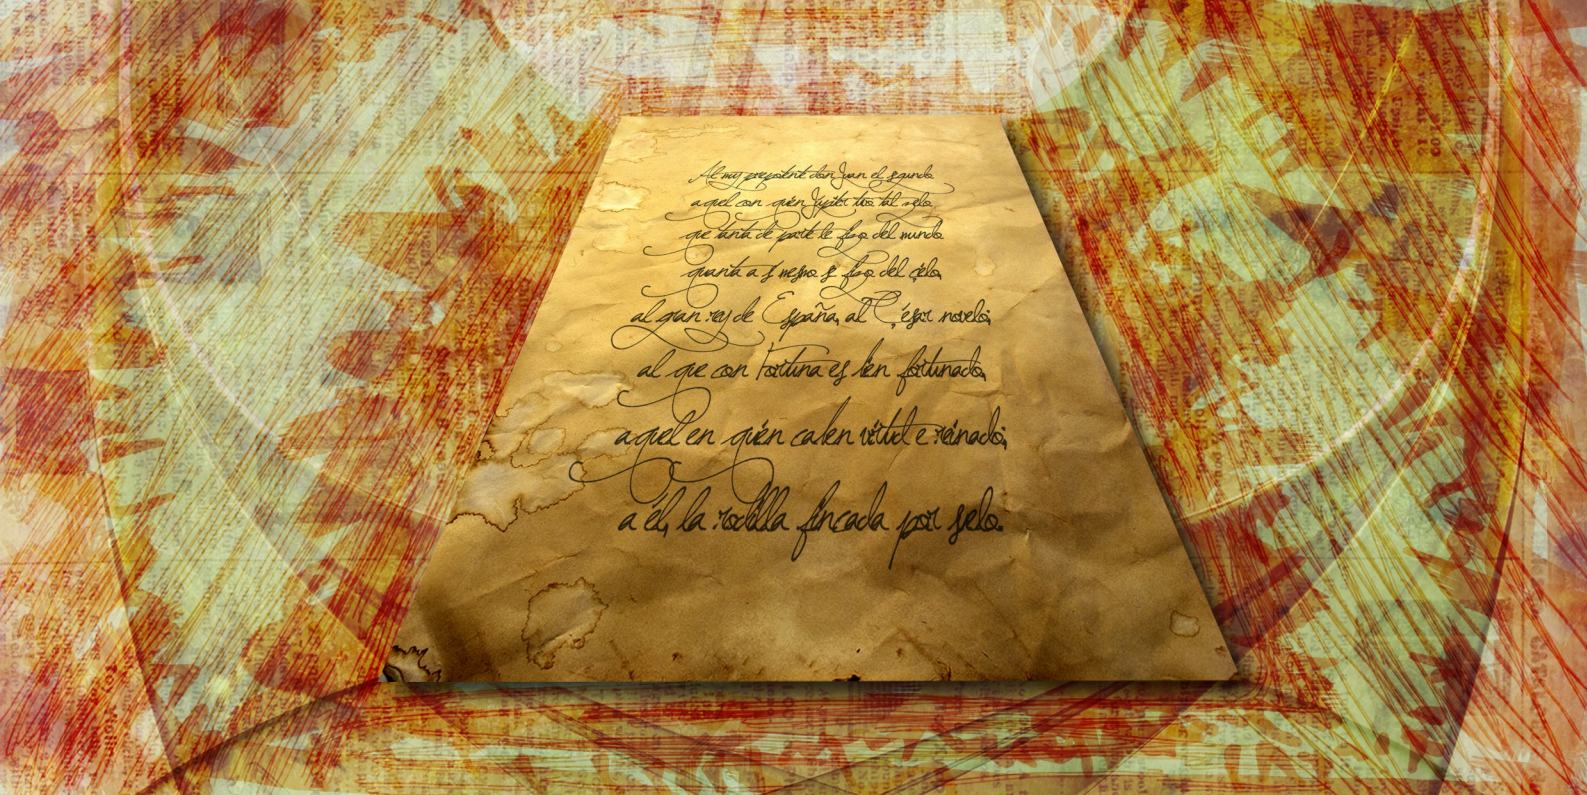 Al muy prepotente don Juan el segundo
aquel con quien Júpiter tuvo tal zelo
que tanta de parte le fizo del mundo
quanta a sí mesmo se fizo del çielo,
al gran rey de España, al Çésar novelo;
al que con Fortuna es bien fortunado,
aquel en quien caben virtud e reinado;
a él, la rodilla fincada por suelo.